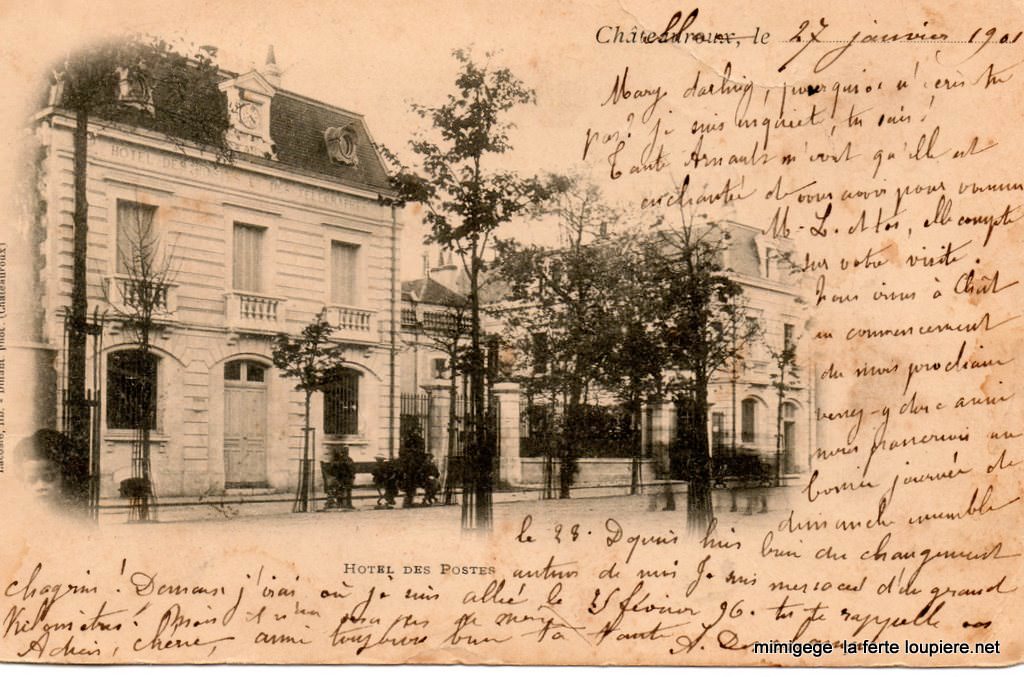 Châteauroux, le 27 janvier 1901
Mary darling, pourquoi n'écris tu
pas? je suis inquiet, tu sais!
Tante Arnault m'écrit qu'elle est
enchantée de vous avoir pour
M. L. elle compte
sur votre visite.
Nous irons à Chât
au commencement
du mois prochain
venez-y donc ainsi
nous passerons une
bonne journée de
dimanche ensemble
le 28. Depuis hier bien du changement
autour de moi Je suis menacé d'un grand
chagrin! Demain j'irai où je suis allée le 25 février 96. tu te rappelle nos
kilomètres! Mais
Adieu, chérie, aime toujours bien ta
HOTEL DES POSTES
HOTEL DES POSTES
Lacoste, lib. - phot. (Châteauroux)
mimigege la ferte loupiere.net